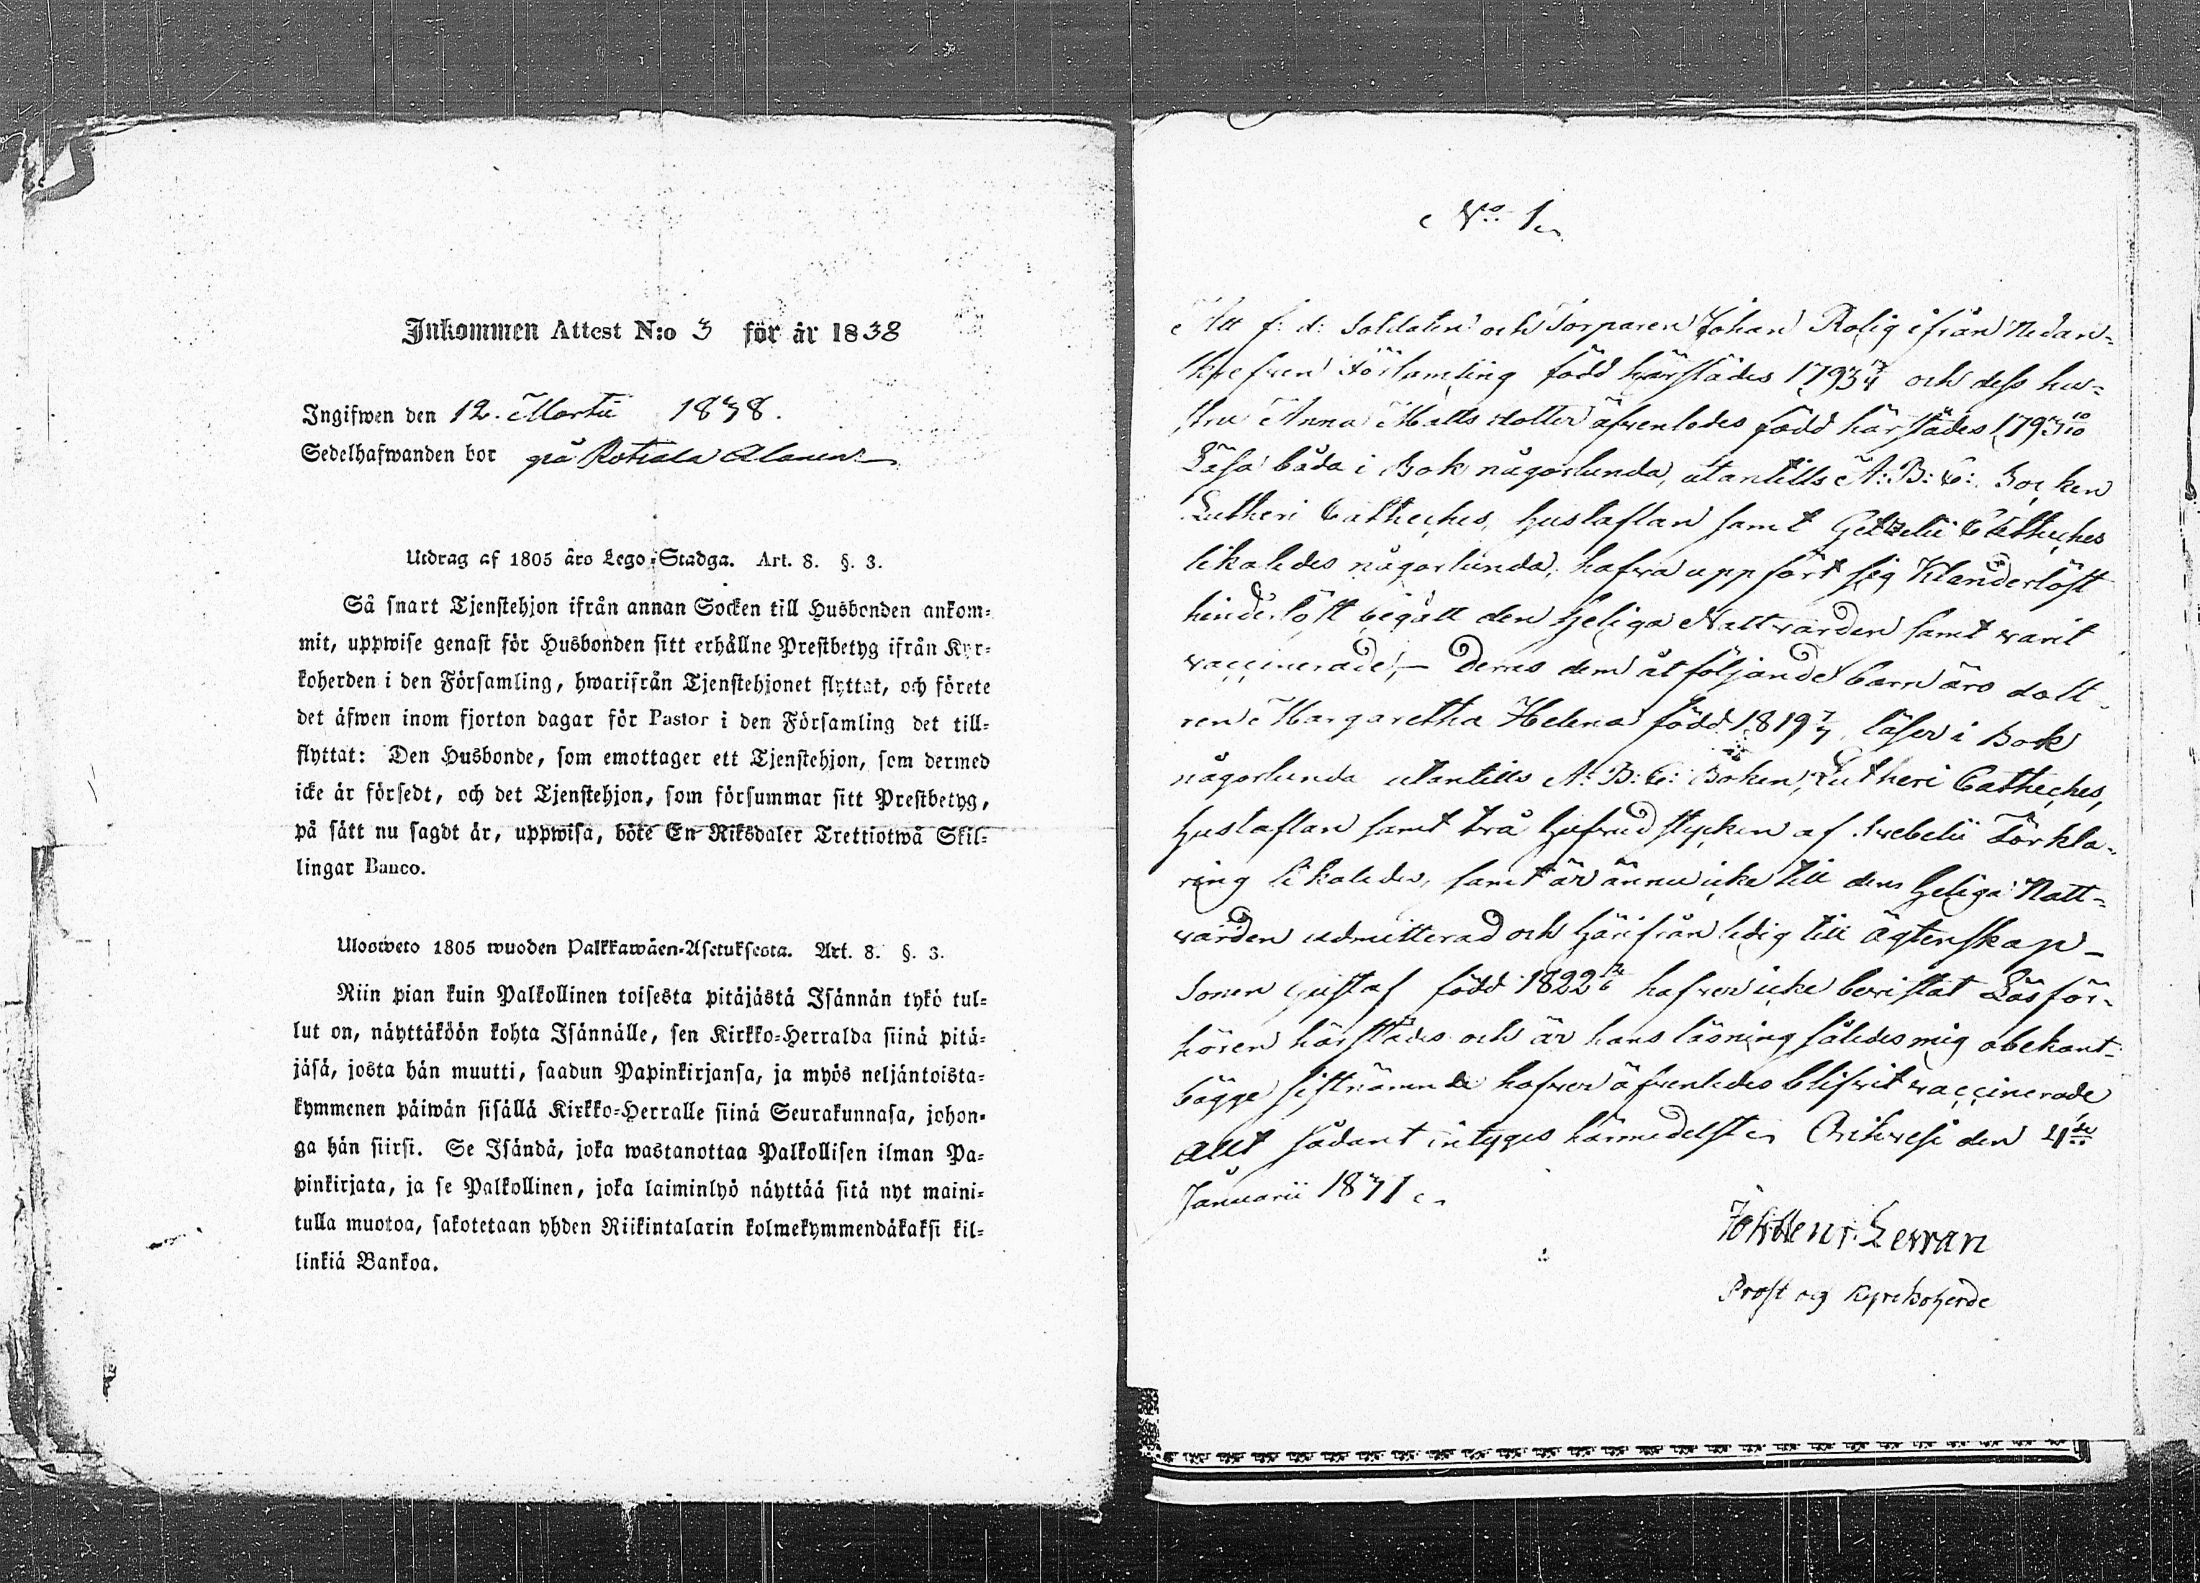 Inkommen Attest N:o 3 för år 1838
Ingifwen den 12. Martii 1838.
Sedelhafwanden bor på Rotiala Alanen
Utdrag af 1805 års Lego-Stadga. Art. 8. §. 3.
Så snart Tjenstehjon ifrån annan Socken till Husbonden ankom-
mit, uppwise genast för Husbonden sitt erhållne Prestbetyg ifrån Kyr-
koherden i den Församling, hwarifrån Tjenstehjonet flyttat, och förete
det äfwen inom fjorton dagar för Pastor i den Församling det till-
flyttat: Den Husbonde, som emottager ett Tjenstehjon, som dermed
icke är försedt, och det Tjenstehjon, som försummar sitt Prestbetyg,
på sätt nu sagdt är, uppwisa, böte En Riksdaler Trettiotwå Skil-
lingar Banco.
Ulosweto 1805 wuoden Palkkawäen-Asetuksesta. Art. 8. §. 3.
Niin pian kuin Palkollinen toisesta pitäjästä Isännän tykö tul-
lut on, näyttäköön kohta Isännälle, sen Kirkko-Herralda siinä pitä-
jäsä, josta hän muutti, saadun Papinkirjansa, ja myös neljäntoista-
kymmenen päiwän sisällä Kirkko-Herralle siinä Seurakunnasa, johon-
ga hän siirsi. Se Isändä, joka wastanottaa Palkollisen ilman Pa-
pinkirjata, ja se Palkollinen, joka laiminlyö näyttää sitä nyt maini-
tulla muotoa, sakotetaan yhden Riikintalarin kolmekymmendäkaksi kil-
linkiä Bankoa.
No 1
Att f: d: Soldaten och Torparen Johan Rolig ifrån Nedan-
skrefven Församling född härstädes 1793 och dess hu-
stru Anna Matts dotter äfvenledes född härstädes 1793 10/10
Läsa båda i Bok någorlunda, utantills A: B: C: Boken
Lutheri Catheches, Hustaflan samt Getzelii Catheches
likaledes någorlunda, hafva uppfört sig Klanderlöst
hinderlöst begått den Heliga Nattvarden samt varit
vaccinerade, – Deras dem åtföljande barn äro dott-
ren Margaretha Helena född 1819 läser i Bok
någorlunda utantills A: B: C: Boken, Lutheri Catheches,
Hustaflan samt två Hufvud stycken af Svebelii Förkla-
ring likaledes, samt är ännu icke till dens Heliga Natt-
varden admitterad och Härifrån ledig till Ägtenskap –
Sonen Gustaf född 1822 hafver icke bevistat Läsför-
hören härstädes och är hans läsning således mig obekant.
bägge sistnämnde hafver äfvenledes blifvit vaccinerade
allt sådant intyges härmedelst Orihvesi den 4de
Januarii 1831
Joh: Henr: Levvan
Prost og Kyrkoherde